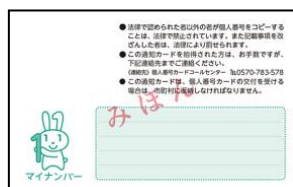 ●法律で認められた者以外の者が個人番号をコピーする
ことは、法律で禁止されています。また記載事項を改
ざんした者は、法律により罰せられます。
●この通知カードを拾得された方は、お手数ですが、
下記連絡先までご連絡ください。
(連絡先)個人番号カードコールセンター ℡0570-783-578
●この通知カードは、個人番号カードの交付を受ける
場合は、市町村に返納しなければなりません。
みほん
マイナンバー